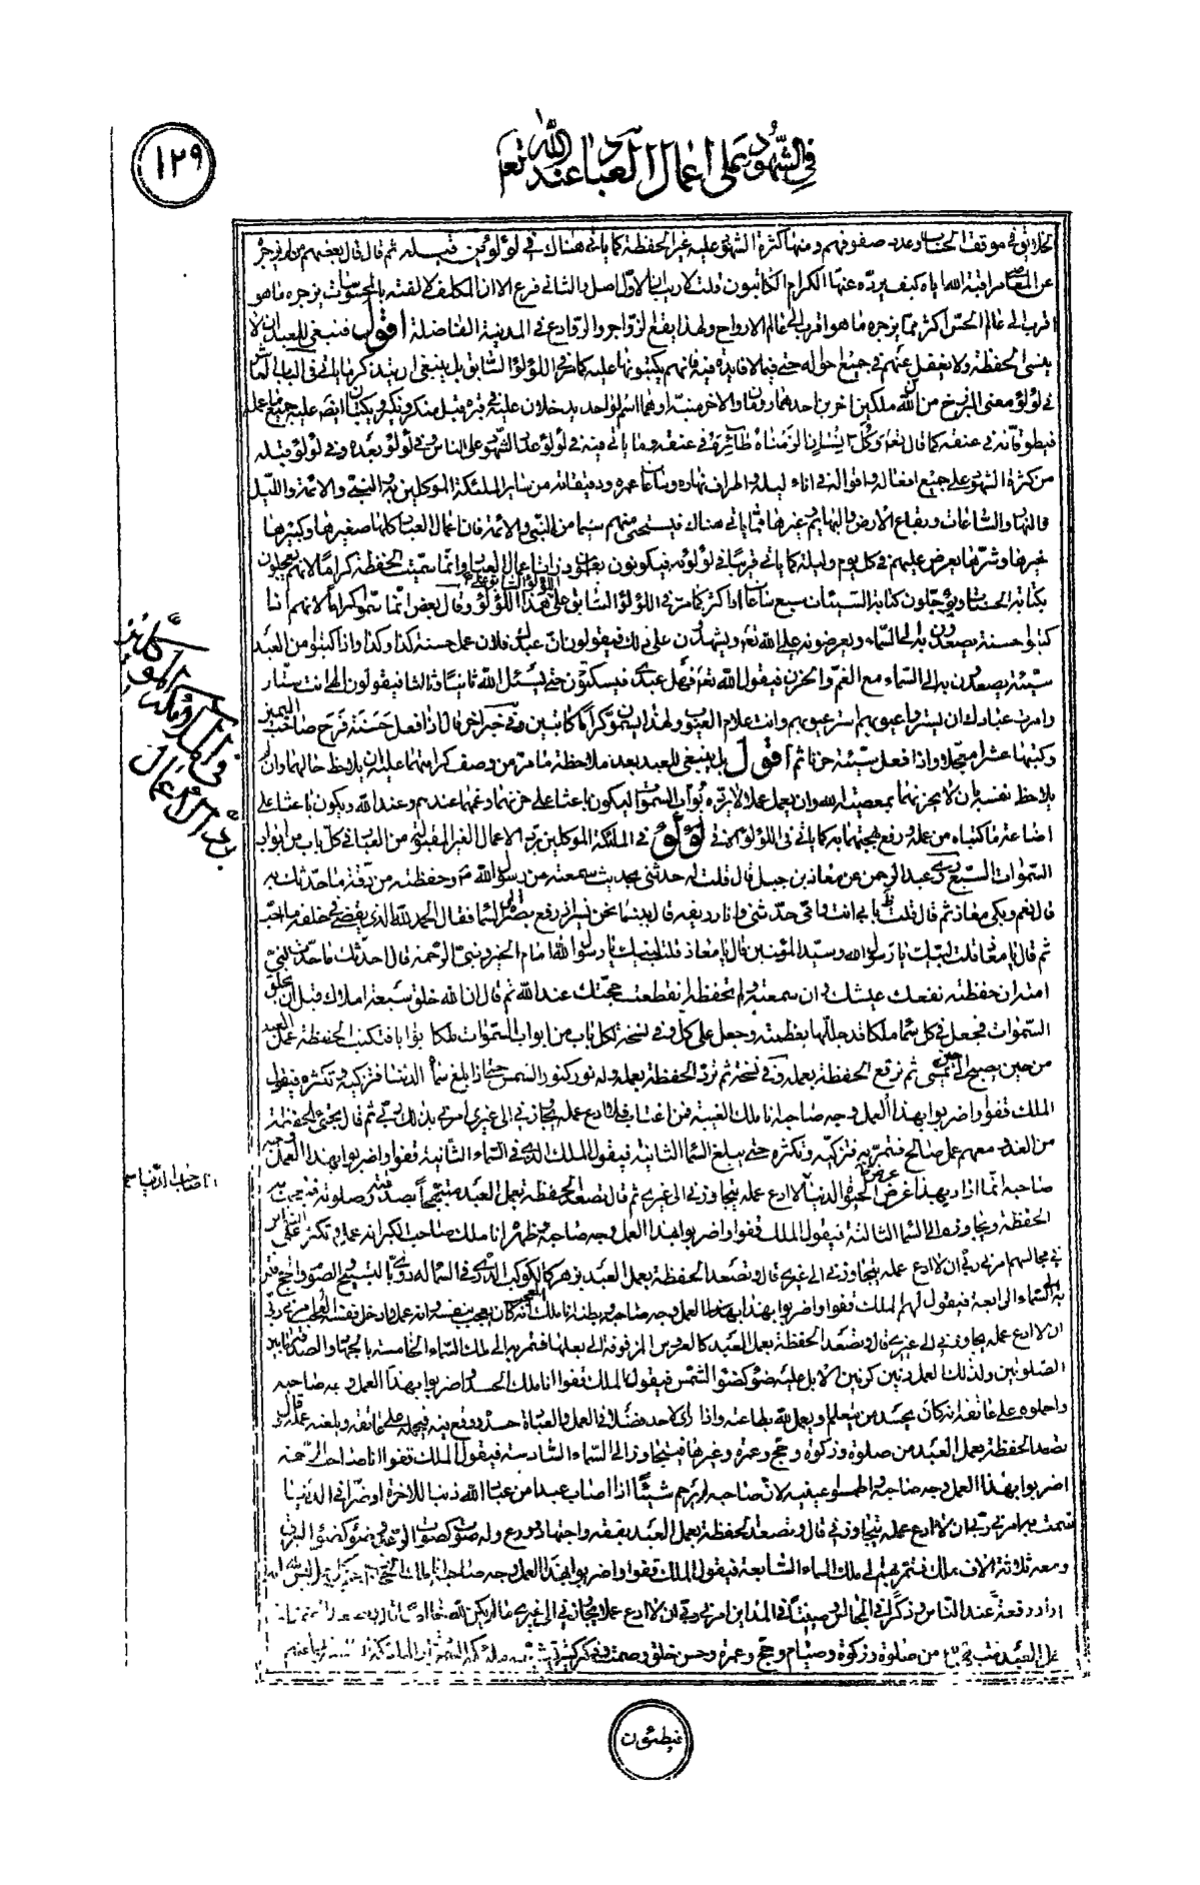 ١٢٩
في الشهود على اعمال العباد عند الله تعا
الخلايق في موقف الحساب وعدد صفوفهم ومنها كثرة الشهود عليه غير الحفظة كما ياتي هناك في لؤلؤين قبله ثم قال قال بعضهم من لم يزجره
عن المعاصي مراقبة الله اياه كيف يرده عنها الكرام الكاتبون قلت لا ريب ان الاول اصل والثاني فرع الا ان المكلف لالفته بالمحسوسات يزجره ما هو
اقرب الى عالم الحس اكثر مما يزجره ما هو اقرب الى عالم الارواح ولهذا يقع الزواجر والروادع في المدينة الفاضلة اقول فينبغي للعبد ان لا
ينسى الحفظة ولا يغفل عنهم في جميع احواله حتى فيما لا فايدة فيه فانهم يكتبونها عليه كما مر في اللؤلؤ السابق بل ينبغي ان يتذكر ما ياتي في الباب
في لؤلؤ معنى البرزخ من ان لله ملكين اخرين احدهما رومان والاخر منبه او هما اسم لواحد يدخلان عليه في قبره قبل منكر ونكير ويكتبان ايضا عليه جميع ما عمله
فيطوقانه في عنقه كما قال تعا وكل انسان الزمناه طائره في عنقه وما ياتي فيه في لؤلؤ عدد الشهود على الناس وفي لؤلؤ بعده وفي لؤلؤ قبله
من كثرة الشهود على جميع افعاله واقواله في اناء ليله واطراف نهاره وساعات عمره ودقيقاته من ساير الملئكة الموكلين به والنبي والائمة والليل
والنهار والساعات وبقاع الارض والبهايم وغيرها مما ياتي هناك فيستحي منهم سيما من النبي والائمة فان اعمال العباد كلها صغيرها وكبيرها
خيرها وشرها يعرض عليهم في كل يوم وليلة كما ياتي قريبا في لؤلؤ انه فيكونون اعمال العباد وانما سميت الحفظة كراما لانهم يعجلون
بكتابة الحسنات ويؤجلون كتابة السيئات سبع ساعات او اكثر كما مر في اللؤلؤ السابق على هذا اللؤلؤ وقال بعض انما سموا كراما لانهم اذا
كتبوا حسنة يصعدون به الى السماء ويعرضونه على الله تعا ويشهدون على ذلك فيقولون ان عبدك فلان عمل حسنة كذا وكذا واذا كتبوا من العبد
سيئة يصعدون به الى السماء مع الغم والحزن فيقول الله تعا فعل عبدي فيسكتون حتى يسئل الله ثانيا وثالثا فيقولون الهي انت ستار
وامرت عبادك ان يستروا عيوبهم استر عيوبهم وانت علام الغيوب ولهذا يسمون كراما كاتبين وفي خبر اخر قال اذا فعل حسنة فرح صاحب اليمين
وكتبها عشرا معجلا واذا فعل سيئة حزنا ثم اقول بل ينبغي للعبد بعد ملاحظة ما مر من وصف كرامتهما عليه ان يلاحظ حالهما وان
يلاحظ نفسه بان لا يحزنهما بمعصية الله وان يعمل عملا لا يرده بواب السموات ليكون باعثا على حزنهما وغمهما عندهم وعند الله ويكون باعثا على
اضاعة ما كتباه من عمله ورفع بهجتهما به كما ياتي في اللؤلؤ الاتي لؤلؤ في الملئكة الموكلين برد الاعمال الغير المقبولة من العباد في كل باب من ابواب
السموات السبع روى عبد الرحمن عن معاذ بن جبل قال قلت له حدثني بحديث سمعته من رسول الله ص وحفظته من دقة ما حدثك به
قال نعم وبكى معاذ ثم قال قلت بابي انت وامي حدثني وانا رديفه قال بينما نحن نسير اذ رفع بصره الى السماء فقال الحمد لله الذي يقضي في خلقه ما احب
ثم قال يا معاذ قلت لبيك يا رسول الله وسيد المؤمنين قال يا معاذ قلت لبيك يا رسول الله امام الخير ونبي الرحمة قال احدثك ما حدث نبي
امته ان حفظته نفعك عيشك وان سمعته ولم تحفظه انقطعت حجتك عند الله ثم قال ان الله خلق سبعة املاك قبل ان يخلق
السموات فجعل في كل سماء ملكا قد جللها بعظمته وجعل على كل وفي نسخة لكل باب من ابواب السموات ملكا بوابا فتكتب الحفظة عمل العبد
من حين يصبح الى حين يمسي ثم ترفع الحفظة بعمله وفي نسخة ثم ترد الحفظة بعمله وله نور كنور الشمس حتى اذا بلغ سماء الدنيا فتزكيه وتكثره فيقول
الملك قفوا واضربوا بهذا العمل وجه صاحبه انا ملك الغيبة فمن اغتاب فلا ادع عمله يجاوزني الى غيري امرني بذلك ربي ثم قال يجيء الحفظة
من الغد ومعهم عمل صالح فتمر به فتزكيه وتكثره حتى يبلغ السماء الثانية فيقول الملك الذي في السماء الثانية قفوا واضربوا بهذا العمل وجه
صاحبه انما اراد بهذا عرض الحيوة الدنيا لا ادع عمله يتجاوزني الى غيري ثم قال تصعد الحفظة بعمل العبد مبتهجا بصدقة وصلوة فتعجب به
الحفظة ويجاوزه الى السماء الثالثة فيقول الملك قفوا واضربوا بهذا العمل وجه صاحبه وظهره انا ملك صاحب الكبر انه عمل وتكبر على الناس
في مجالسهم امرني ربي ان لا ادع عمله يتجاوزني الى غيري قال وتصعد الحفظة بعمل العبد يزهر كالكوكب الدري في السماء له دوي بالتسبيح والصوم والحج فتمر
به الى السماء الرابعة فيقول لهم الملك قفوا واضربوا بهذا العمل وجه صاحبه وبطنه انا ملك العجب انه كان يعجب بنفسه وانه عمل وادخل نفسه العجب امرني ربي
ان لا ادع عمله يجاوزني الى غيري قال وتصعد الحفظة بعمل العبد كالعروس المزفوفة الى بعلها فتمر به الى ملك السماء الخامسة بالجهاد والصدقة ما بين
الصلوتين ولذلك العمل رنين كرنين الابل عليه ضوء كضوء الشمس فيقول الملك قفوا انا ملك الحسد واضربوا بهذا العمل وجه صاحبه
واحملوه على عاتقه انه كان يحسد من يتعلم او يعمل لله بطاعته واذا راى لاحد فضلا في العمل والعبادة حسده ووقع فيه فيحمله على عاتقه ويلعنه عمله قال و
تصعد الحفظة بعمل العبد من صلوة وزكوة وحج وعمرة وغيرها فيتجاوز الى السماء السادسة فيقول الملك قفوا انا صاحب الرحمة
اضربوا بهذا العمل وجه صاحبه واطمسوا عينيه لان صاحبه لم يرحم شيئا اذا اصاب عبدا من عباد الله ذنبا للاخرة او ضرا في الدنيا
شمت به امرني ربي ان لا ادع عمله يتجاوزني قال وتصعد الحفظة بعمل العبد بفقه واجتهاد وورع وله صوت كصوت الرعد وضوء كضوء البرق
ومعه ثلاثة الاف ملك فتمر بهم الى ملك السماء السابعة فيقول الملك قفوا واضربوا بهذا العمل وجه صاحبه انا ملك الحجب احجب كل عمل ليس لله انه
اراد رفعة عند الناس وذكرا في المجالس وصيتا في المداين امرني ربي ان لا ادع عملا يجاوزني الى غيري ما لم يكن لله خالصا قال وتصعد الحفظة
بعمل العبد مبتهجا به من صلوة وزكوة وصيام وحج وعمرة وحسن خلق وصمت وذكر كثير تشيعه ملئكة السموات
في الملئكة الموكلين
برد الاعمال
انا صاحب الدنيا
فيطئون